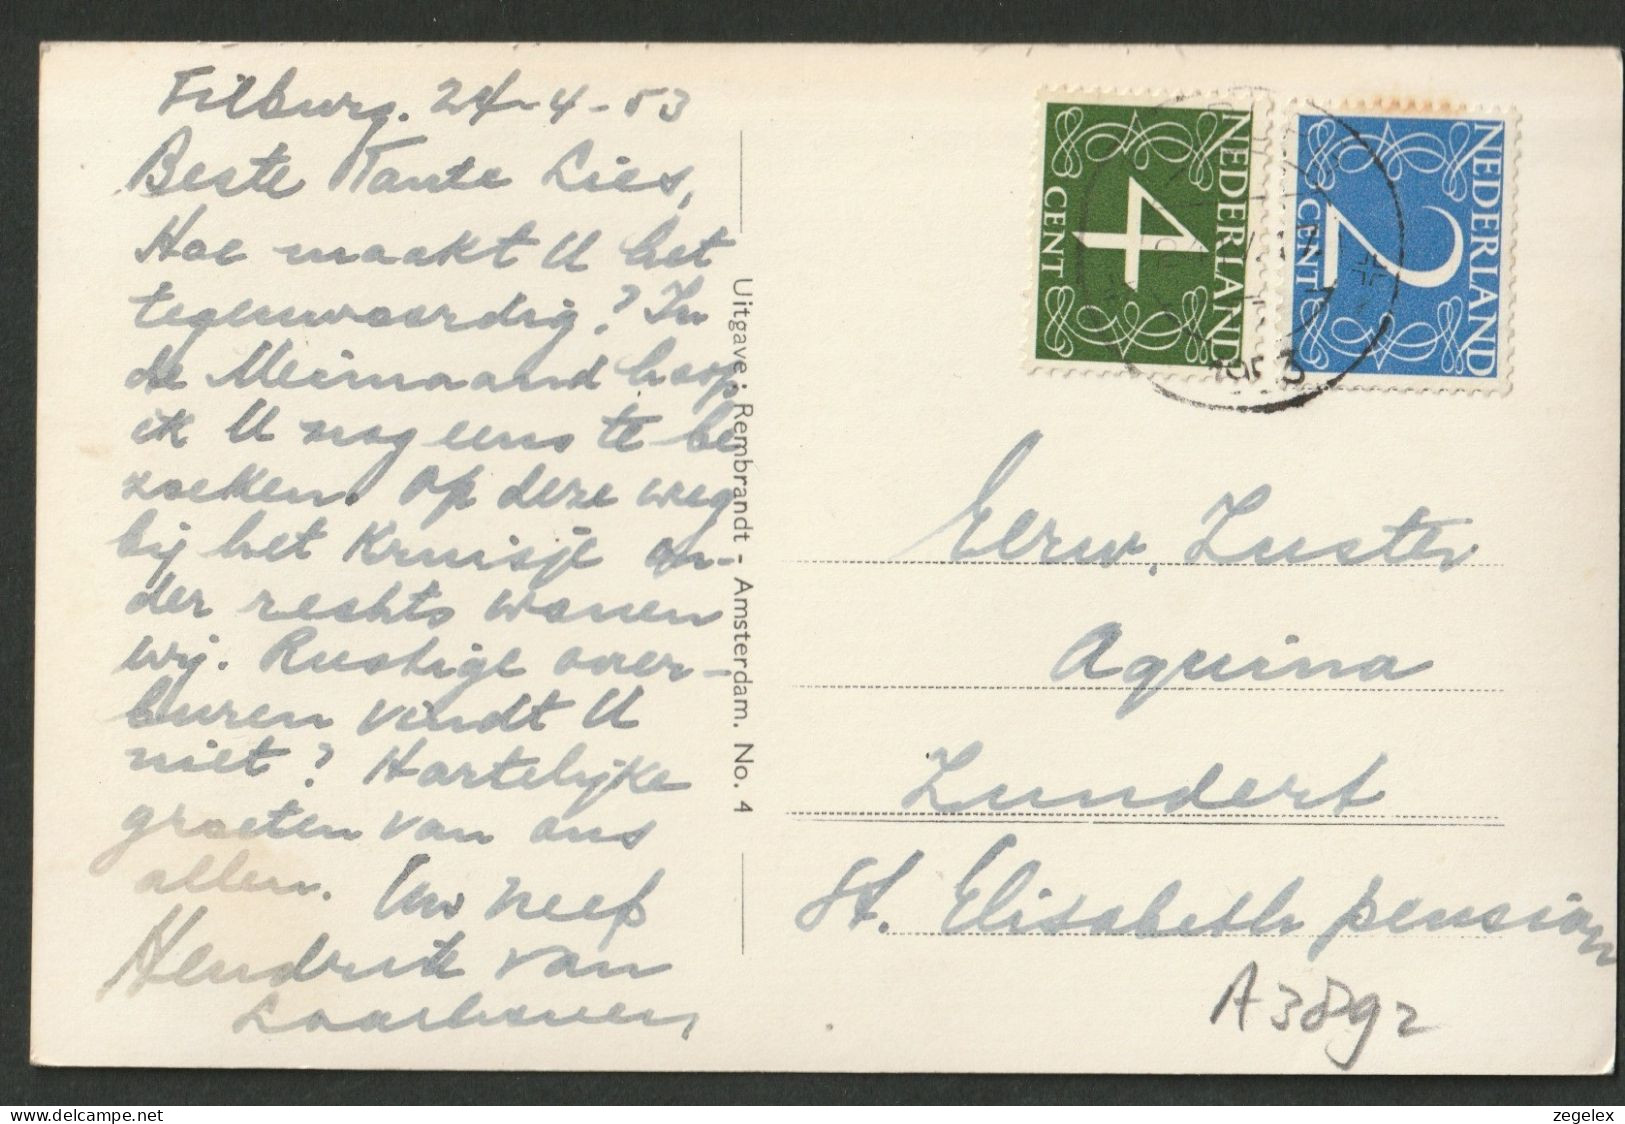 Tilburg. 24-4-53
Beste Tante Lies,
Hoe maakt U het
tegenwoordig? In
de Meimaand hoop
ik U nog eens te be
zoeken. Op deze weg
bij het Kruisje on-
der rechts wonen
wij. Rustige over-
buren vindt U
niet? Hartelijke
groeten van ons
allen. Uw neef
Hendrik van
Laarhoven,
Uitgave: Rembrandt - Amsterdam. No. 4
NEDERLAND
4
CENT
NEDERLAND
2
CENT
1953
Eerw. Zuster
Aquina
Zundert
St. Elisabeth pension
A3892
delcampe.net
zegelex